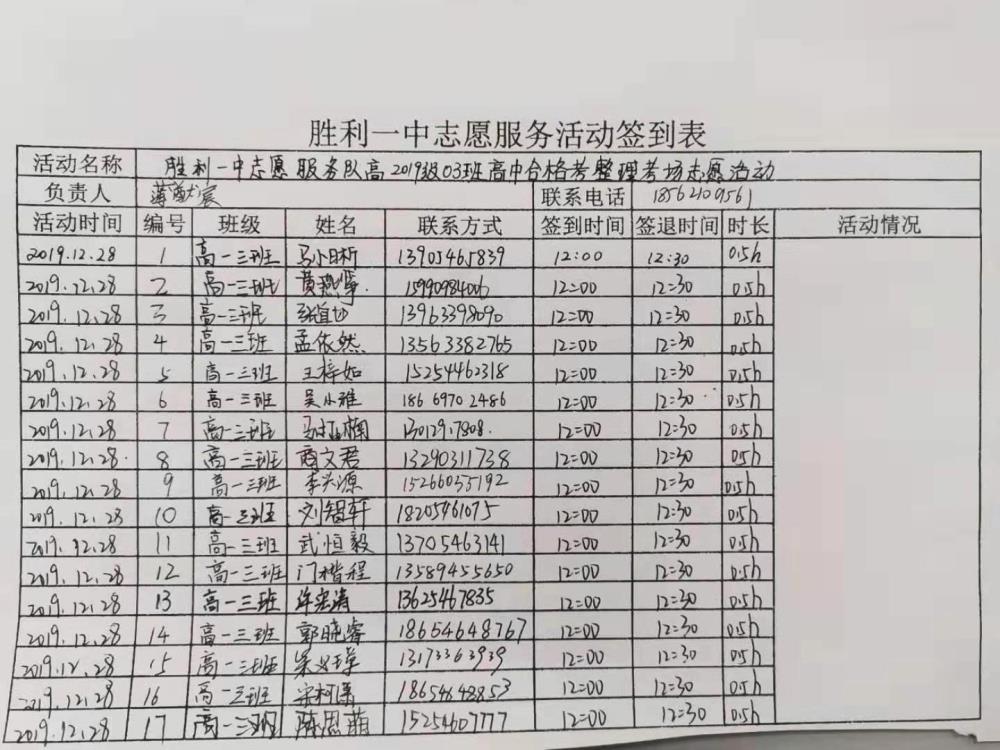 胜利一中志愿服务活动签到表
活动名称 胜利一中志愿服务队高2019级03班高中合格考整理考场志愿活动
负责人 联系电话 18562109561
活动时间 编号 班级 姓名 联系方式 签到时间 签退时间 时长 活动情况
2019.12.28 1 高一三班 13905465839 12:00 12:30 0.5h
2019.12.28 2 高一三班 15990984006 12:00 12:30 0.5h
2019.12.28 3 高一三班 13963398090 12:00 12:30 0.5h
2019.12.28 4 高一三班 孟依然 13563382765 12:00 12:30 0.5h
2019.12.28 5 高一三班 王梓如 15254462318 12:00 12:30 0.5h
2019.12.28 6 高一三班 吴小雅 186 6970 2486 12:00 12:30 0.5h
2019.12.28 7 高一三班 12:00 12:30 0.5h
2019.12.28 8 高一三班 商文君 13290311738 12:00 12:30 0.5h
2019.12.28 9 高一三班 李兴源 15266035192 12:00 12:30 0.5h
2019.12.28 10 高一三班 刘智轩 18205461075 12:00 12:30 0.5h
2019.12.28 11 高一三班 武恒毅 13705463141 12:00 12:30 0.5h
2019.12.28 12 高一三班 门楷程 13589455650 12:00 12:30 0.5h
2019.12.28 13 高一三班 13625467835 12:00 12:30 0.5h
2019.12.28 14 高一三班 郭晓睿 18654648767 12:00 12:30 0.5h
2019.12.28 15 高一三班 13173363939 12:00 12:30 0.5h
2019.12.28 16 高一三班 18654648853 12:00 12:30 0.5h
2019.12.28 17 高一三班 陈思萌 15254607777 12:00 12:30 0.5h